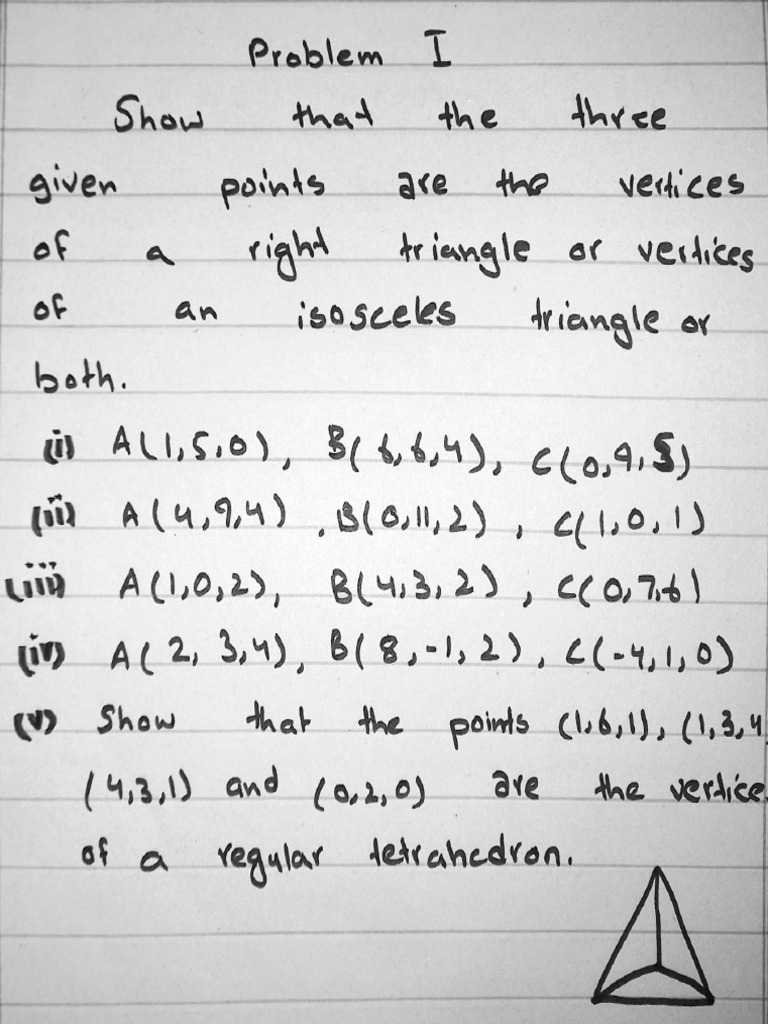 Problem I
Show that the three
given points are the vertices
of a right triangle or vertices
of an isosceles triangle or
both.
(i) A(1,5,0), B(6,6,4), C(0,9,5)
(ii) A(4,9,4), B(0,11,2), C(1,0,1)
(iii) A(1,0,2), B(4,3,2), C(0,7,6)
(iv) A(2, 3,4), B(8,-1,2), C(-4,1,0)
(v) Show that the points (1,6,1), (1,3,4
(4,3,1) and (0,2,0) are the vertice
of a regular tetrahedron.